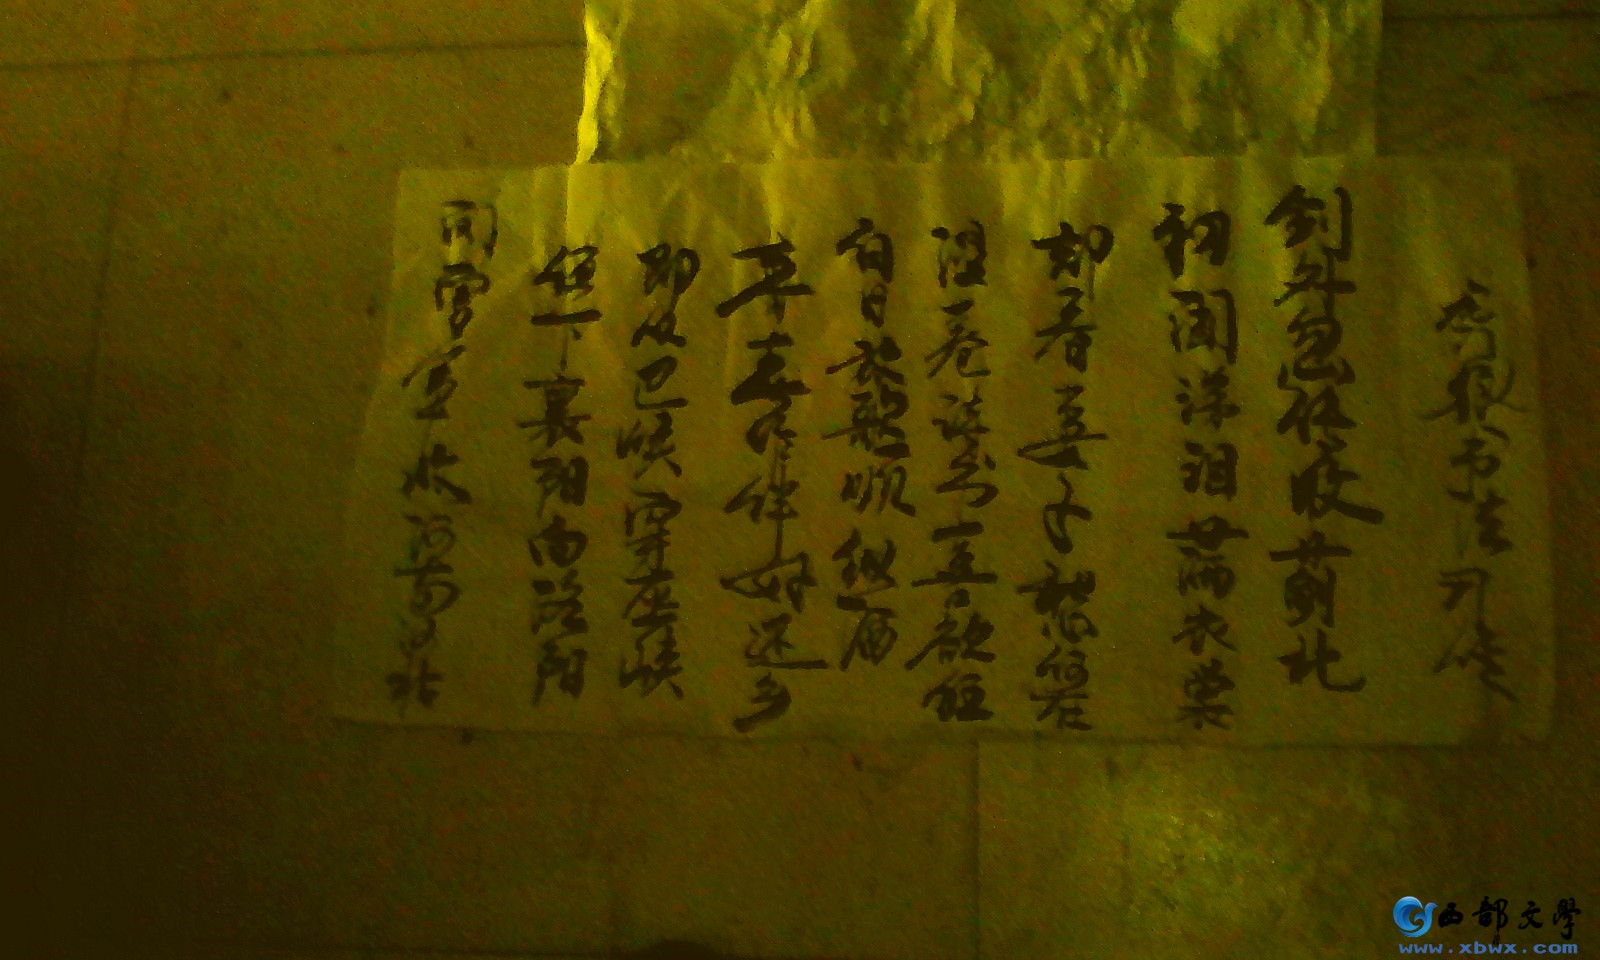 书法
剑外忽传收蓟北
初闻涕泪满衣裳
却看妻子愁何在
漫卷诗书喜欲狂
白日放歌须纵酒
青春作伴好还乡
即从巴峡穿巫峡
便下襄阳向洛阳
闻官军收河南河北
西部文學
www.xbwx.com